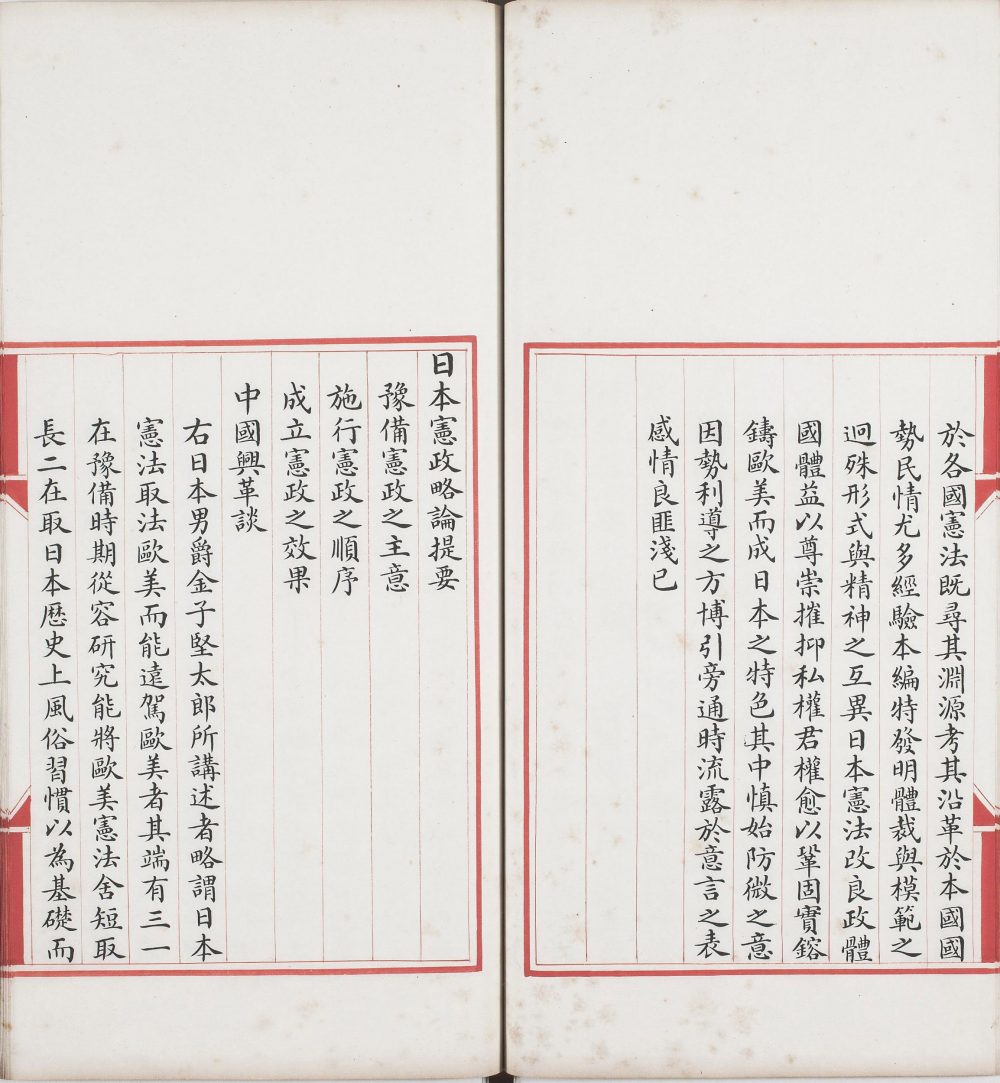 於各國憲法既尋其淵源考其沿革於本國國
勢民情尤多經驗本編特發明體裁與模範之
迥殊形式與精神之互異日本憲法改良政體
國體益以尊崇摧抑私權君權愈以鞏固實鎔
鑄歐美而成日本之特色其中慎始防微之意
因勢利導之方博引旁通時流露於意言之表
感情良匪淺已
日本憲政略論提要
豫備憲政之主意
施行憲政之順序
成立憲政之效果
中國興革談
右日本男爵金子堅太郎所講述者略謂日本
憲法取法歐美而能遠駕歐美者其端有三一
在豫備時期從容研究能將歐美憲法舍短取
長二在取日本歷史上風俗習慣以為基礎而